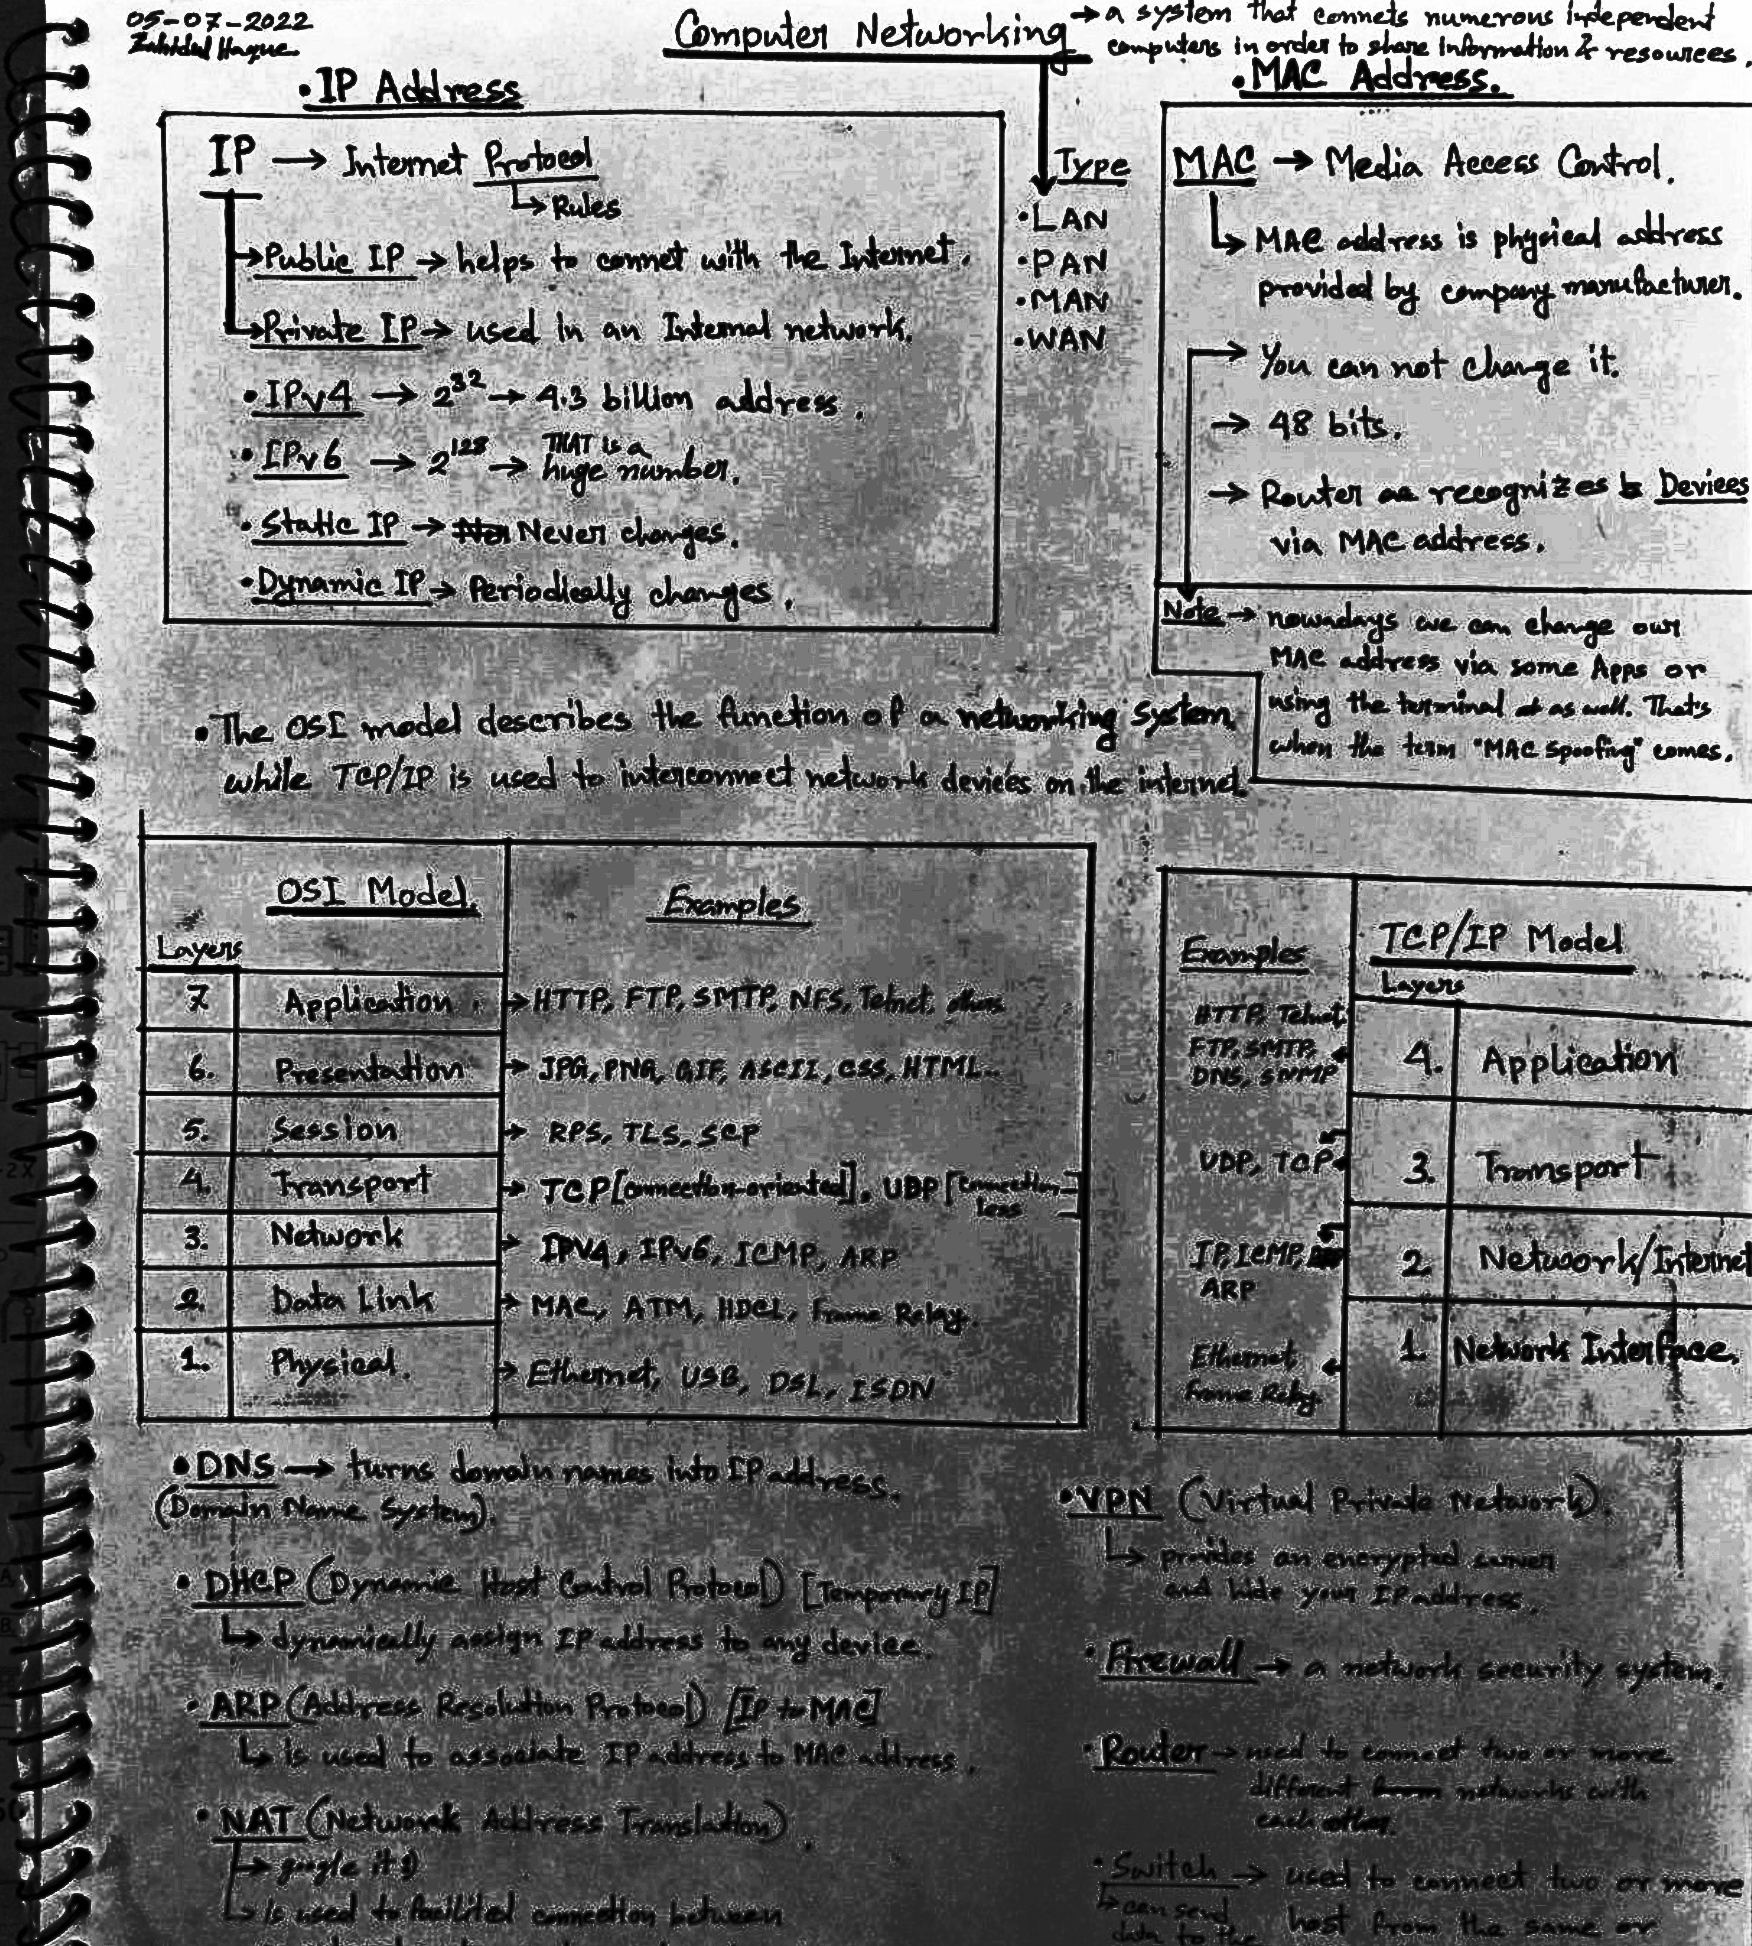 05-07-2022
Zahidul Haque
Computer Networking → a system that connets numerous independent
computers in order to share information & resources.
• IP Address
IP → Internet Protocol
↳ Rules
→ Public IP → helps to connet with the Internet.
→ Private IP → used in an Internal network.
• IPv4 → 2^32 → 4.3 billion address.
• IPv6 → 2^128 → THAT is a
huge number.
• Static IP → Never changes.
• Dynamic IP → Periodically changes.
Type
• LAN
• PAN
• MAN
• WAN
• MAC Address.
MAC → Media Access Control.
↳ MAC address is physical address
provided by company manufacturer.
→ You can not change it.
→ 48 bits.
→ Router recognizes Devices
via MAC address.
Note → nowadays we can change our
MAC address via some Apps or
using the terminal as well. That's
when the term "MAC spoofing" comes.
• The OSI model describes the function of a networking system,
while TCP/IP is used to interconnect network devices on the internet.
OSI Model. Examples
Layers
7 Application. → HTTP, FTP, SMTP, NFS, Telnet, others
6. Presentation → JPG, PNG, GIF, ASCII, CSS, HTML...
5. Session → RPS, TLS, SCP
4. Transport → TCP [connection-oriented], UBP [connection-
less]
3. Network → IPV4, IPv6, ICMP, ARP
2. Data Link → MAC, ATM, HDCL, Frame Relay.
1. Physical. → Ethernet, USB, DSL, ISDN
Examples TCP/IP Model
Layers
HTTP, Telnet,
FTP, SMTP,
DNS, SNMP
4. Application
UDP, TCP
3. Transport
IP, ICMP,
ARP
2. Network/Internet
Ethernet,
Frame Relay
1. Network Interface.
• DNS → turns domain names into IP address.
(Domain Name System).
• DHCP (Dynamic Host Control Protocol) [Temporary IP]
↳ dynamically assign IP address to any device.
• ARP (Address Resolution Protocol) [IP to MAC]
↳ is used to associate IP address to MAC address.
• NAT (Network Address Translation).
→ google it :)
↳ is used to connection between
• VPN (Virtual Private Network).
↳ provides an encrypted
and hide your IP address.
• Firewall → a network security system.
• Router → used to connect two or more
different networks with
each other.
• Switch → used to connect two or more
↳ can send host from the same or
data to the